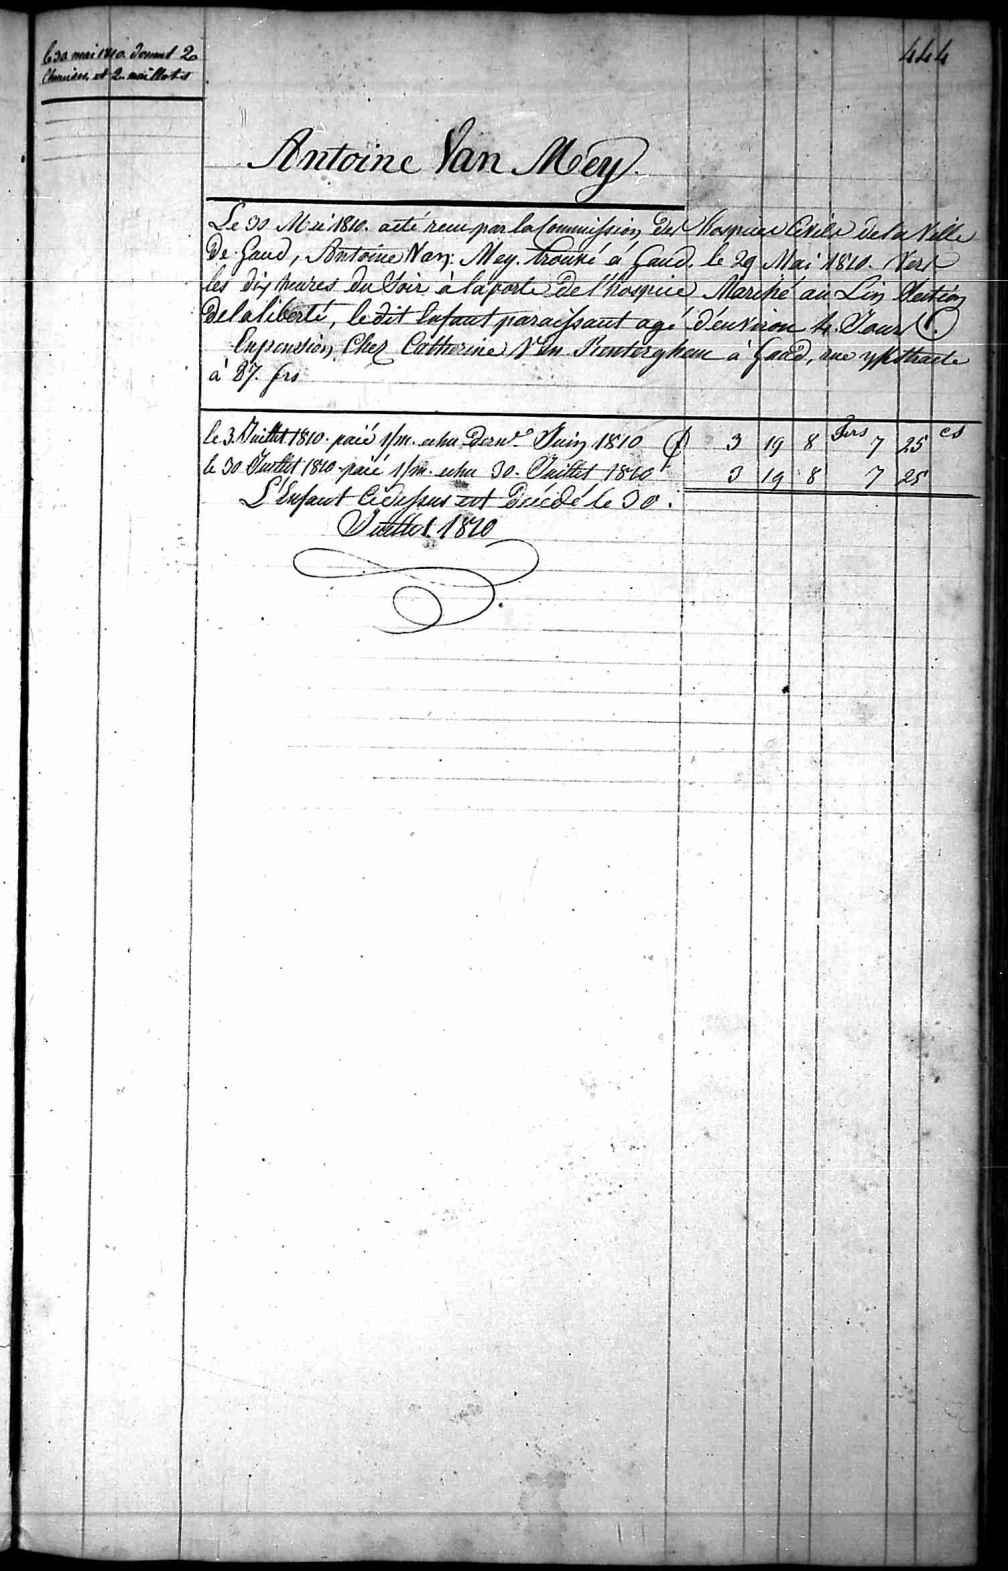 le 30 mai 1810 donné 2
Chemises et 2 maillots
444
Antoine Van Mey.
Le 30 Mai 1810. a été recu par la Commission des Hospices Civils de la Ville
de Gand, Antoine Van Mey. trouvé à Gand. le 29 Mai 1810. Vers
les dix heures du Soir à la porte de l'hospice Marché au Lin Section
de la liberté, le dit Enfant paraissant agé d'environ 4. Jours
En pension Chez Catherine Van Renterghem à Gand, rue
à 87. frs
le 3. Juillet 1810. paié 1/m. echu dern.r Juin 1810 3 19 8 frs 7 25 cs
le 30 Juillet 1810. paié 1/m. echu 30. Juillet 1810 3 19 8 7 25
L'Enfant Cidessus est Décédé le 30.
Juillet 1810